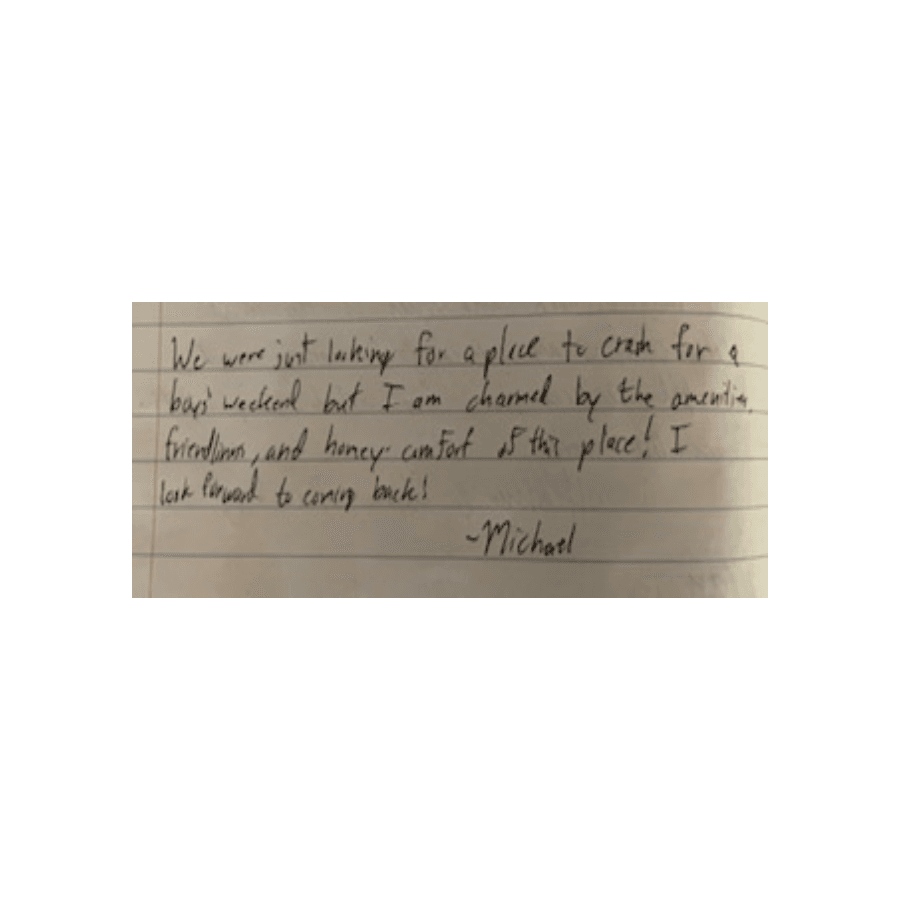 We were just looking for a place to crash for a
boys' weekend but I am charmed by the amenities,
friendliness, and homey comfort of this place! I
look forward to coming back!
-Michael